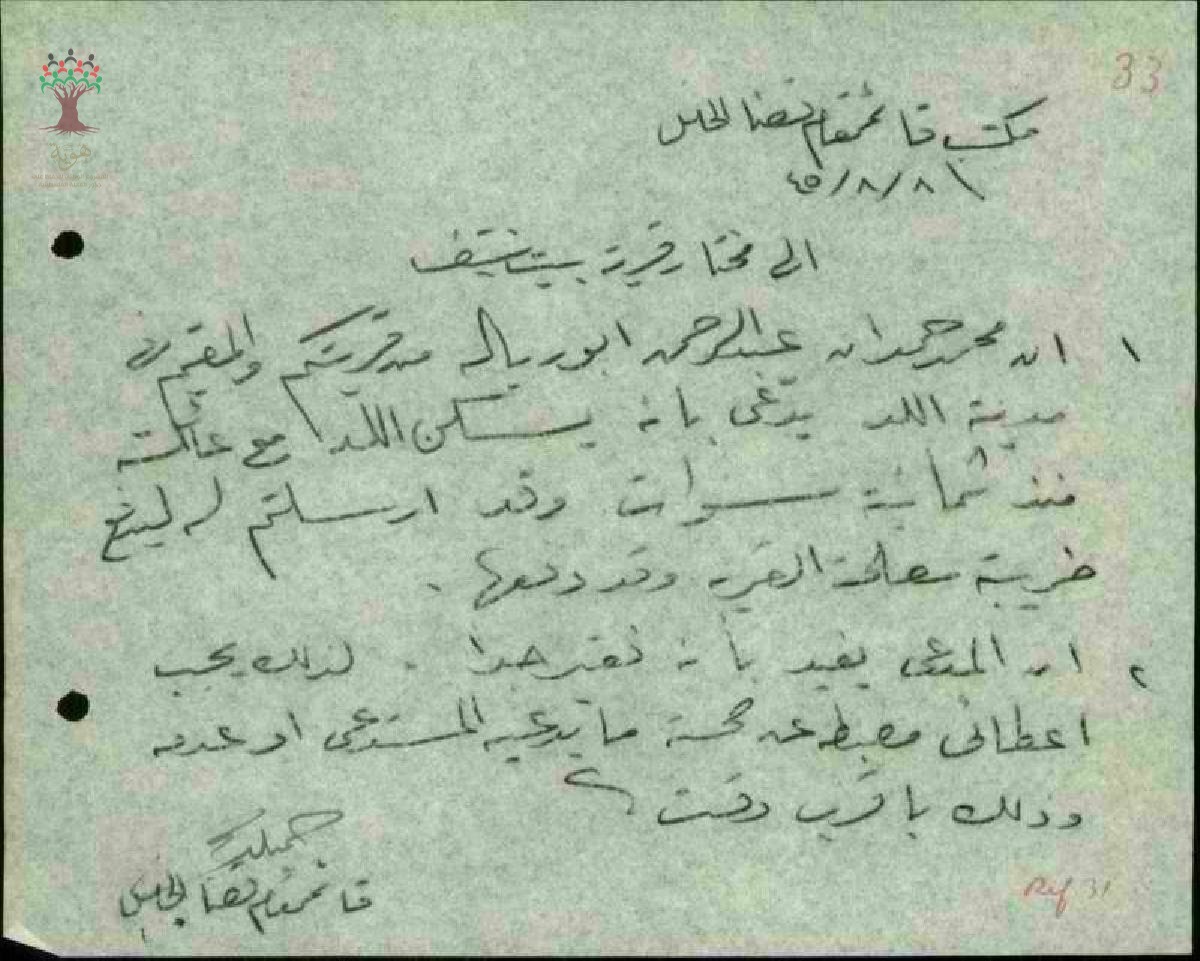 33
مكتب قائمقام قضا الخليل
١٨/٨/٤٥
الى مختار قرية بيت نتيف
١ ان محمد حمدان عبدالرحمن ابو رياله من قريتكم والمقيم في
مدينة اللد يدعي بانه يسكن اللد مع عائلته
منذ ثمانية سنوات وقد ارسلتم له ليدفع
ضريبة القرية وقد دفعها .
٢ ان المدعي يفيد بانه فقير جدا . لذلك يجب
اعطائي مضبطه عن صحة ما يدعيه المستدعي او عدمه
وذلك باقرب وقت
قائمقام قضا الخليل
Ref 31
هوية